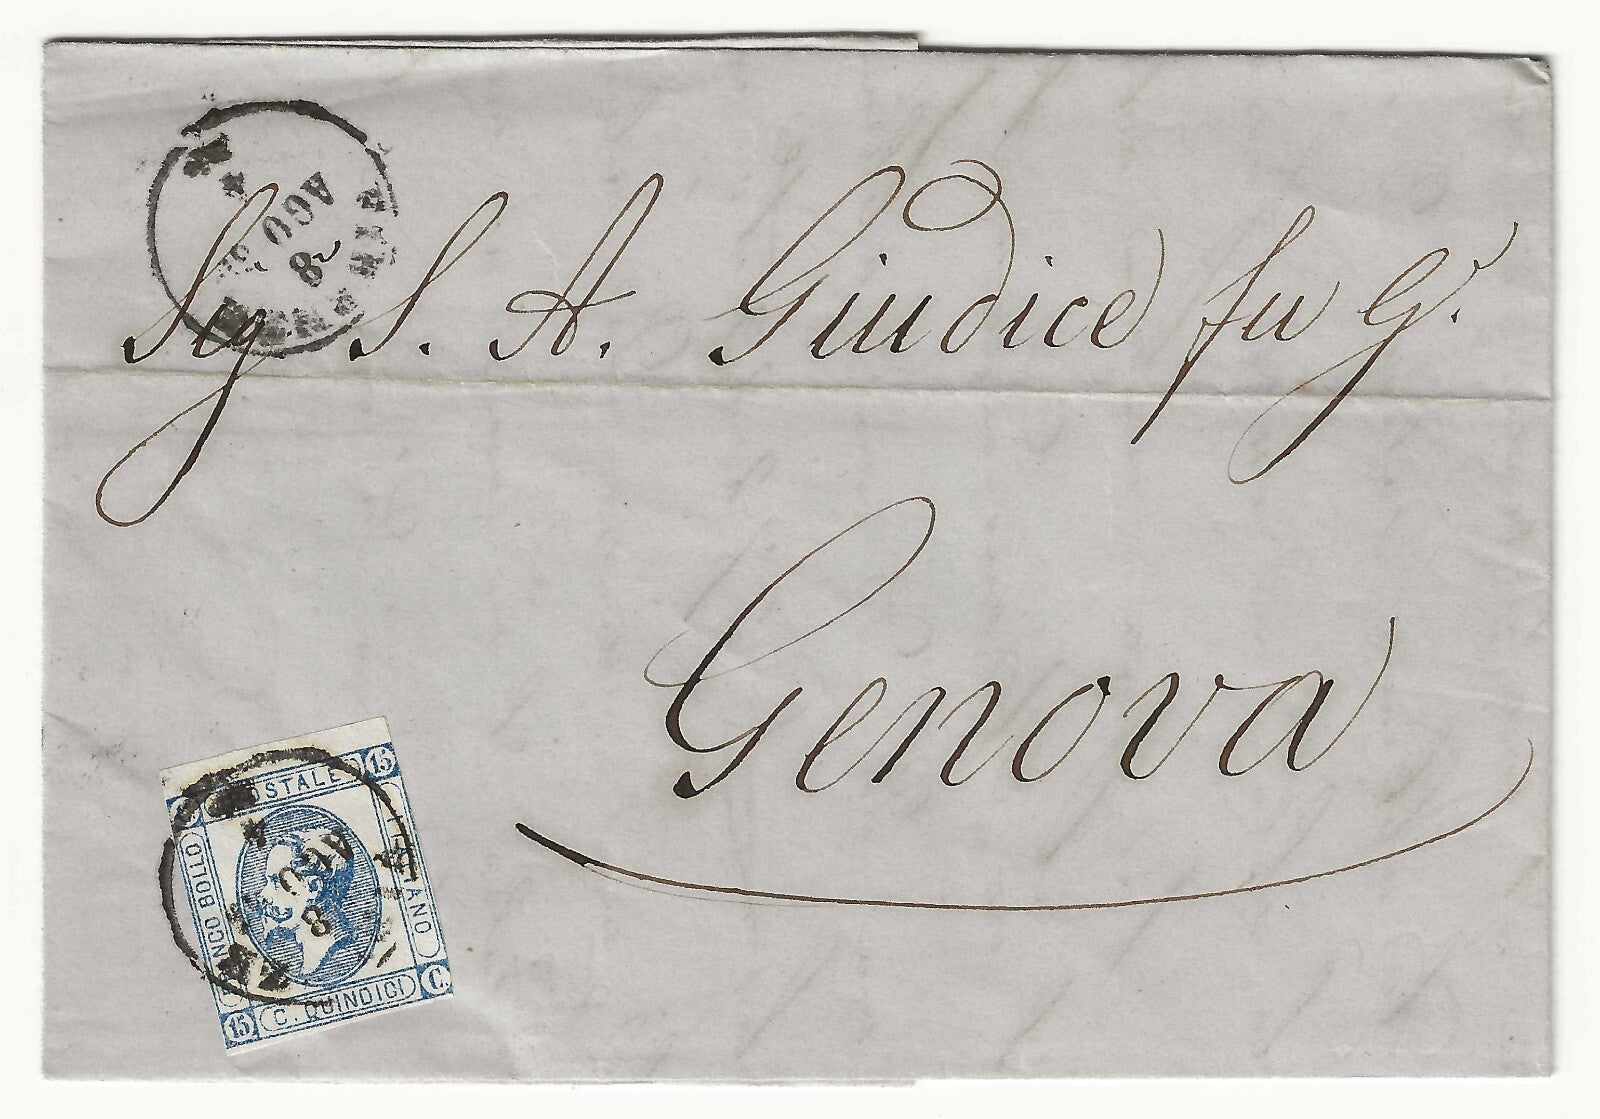 4
AGO
8
Sig. S. A. Giudice fu G.
Genova
POSTALE
15
BOLLO
ITALIANO
4
AGO
8
15
C. QUINDICI
C.